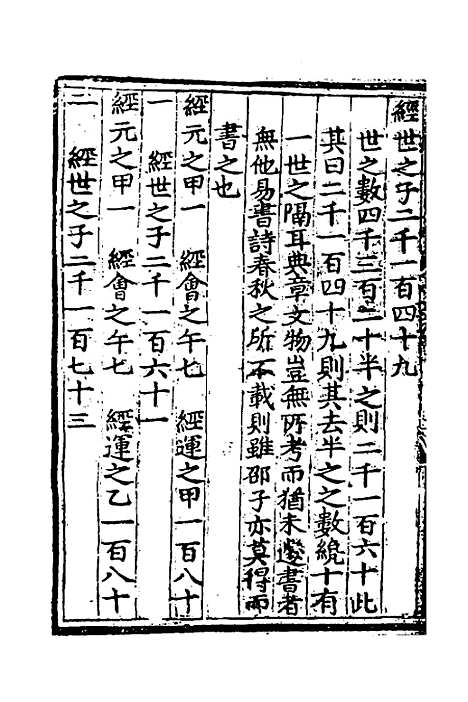 經世之子二千一百四十九
世之數四千三百二十半之則二千一百六十此
其曰二千一百四十九則其去半之之數纔十有
一世之隔耳典章文物豈無所考而猶未變書者
無他易書詩春秋之所不載則雖邵子亦莫得而
書之也
經元之甲一 經會之午七 經運之甲一百八十
一 經世之子二千一百六十一
經元之甲一 經會之午七 經運之乙一百八十
二 經世之子二千一百七十三